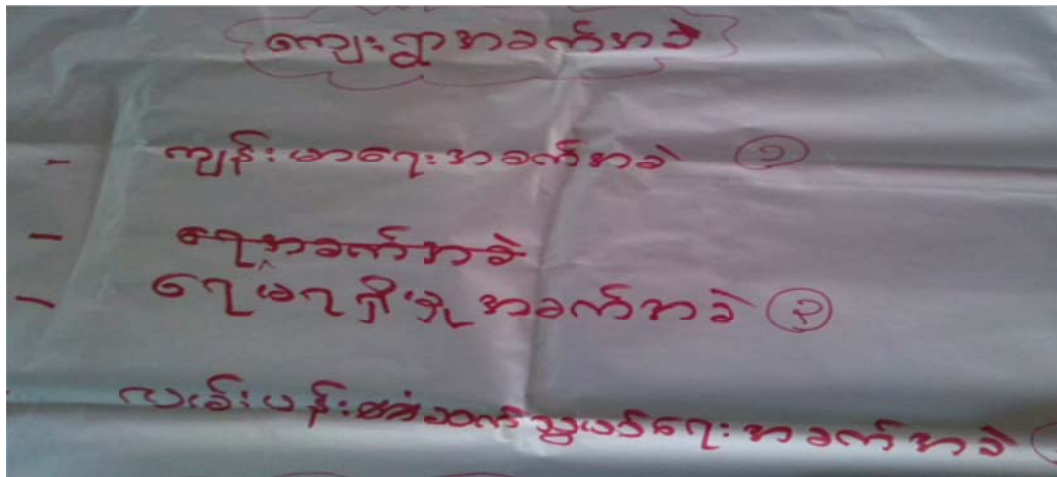 ကျေးရွာအခက်အခဲ
- ကျန်းမာရေးအခက်အခဲ ၁
- ရေအခက်အခဲ
- ရေမရရှိမှုအခက်အခဲ ၂
လမ်းပန်းဆက်သွယ်ရေးအခက်အခဲ